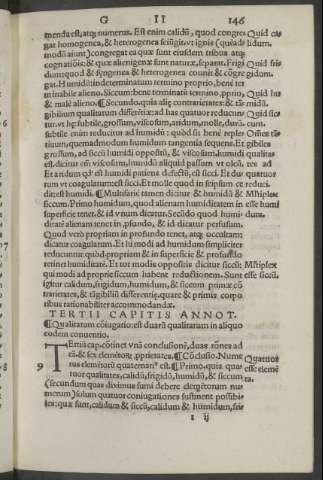 G II 146
menda est, atq; numerus. Est enim calidũ, quod congre- Quid ca-
gat homogenea, & heterogenea seiũgit, vt ignis (quia lidum.
modũ aiunt) congregat ea quæ sunt eiusdem tribus atq;
cognitionis: & quæ alienigenæ sunt naturæ, separat. Frigi Quid fri-
dum: quod & sỹngenea & heterogenea counit & cõgre gidum.
gat. Humidũ: indeterminatum termino proprio, bene ter
minabile alieno. Siccum: bene terminatũ termino proprio, Quid hu
& malè alieno. ¶ Secundo. quia aliq cõtrarietates: & tã midũ.
gibilium qualitatum differẽtiæ: ad has quatuor reducun- Quid sic-
tur. vt hæ subtile, grossum, viscosum, aridum, molle, durũ. cum.
subtile enim reducitur ad humidũ: quòd sit bene reple-
tiuum, quemadmodum humidum tangentia sequens. Et
grossum, ad siccũ humidi oppositũ, & viscosum, humidi qualitas
est. dicitur em̃ viscosum, humidũ aliquid passum vt oleũ.
Et aridum qđ est humidi patiens defectũ, est sicci. Et du- quatuor
rum vt coagulatum est sicci. Et molle quod in seipsum ce- reduci.
dit: est humidi. ¶ Multifariè tamen dicitur & humidũ & Mltiplex
siccum. Primo humidum, quod alienam humiditatem in esse humi
superficie tenet. & id vnum dicatur. Secũdo quod humi- dum.
ditatẽ alienam tenet in ,pfundo, & id dicatur perfusum.
Quod verò propriam in profundo tenet, atq; occultam:
dicatur coagulatum. Et hi modi ad humidum simpliciter
reducuntur: quòd propriam & in superficie & profundo
retinet humiditatẽ. Et tot modis oppositis dicitur siccũ: Mltiplex
qui modi ad proprie siccum habent reductionem. Sunt esse siccũ.
igitur calidum, frigidum, humidum, & siccum primæ cõ
trarietates, & tãgibiliũ differentiæ: quare & primis corpo
ribus rationabiliter accommodandæ.
TERTII CAPITIS ANNOT.
¶ Qualitatum coniugatio: est duarũ qualitatum in aliquo
eodem conuentio.
TErtiũ cap. cõtinet vnã conclusionẽ, duas rõnes ad
eã, & sex elemẽtorũ ,pprietates. ¶ Cõclusio. Nume Quatuor
9 rus elemẽtorũ quaternariꝰ est. ¶ Primo. quia qua- esse elemẽ
tuor qualitates, calidũ, frigidũ, humidũ, & siccum ta.
(secundum quas diximus sumi debere elemẽtorum nu-
merum) solum quatuor coniugationes sustinent possibi-
les: quæ sunt, calidum & siccũ, calidum & humidum, fri-
t ij